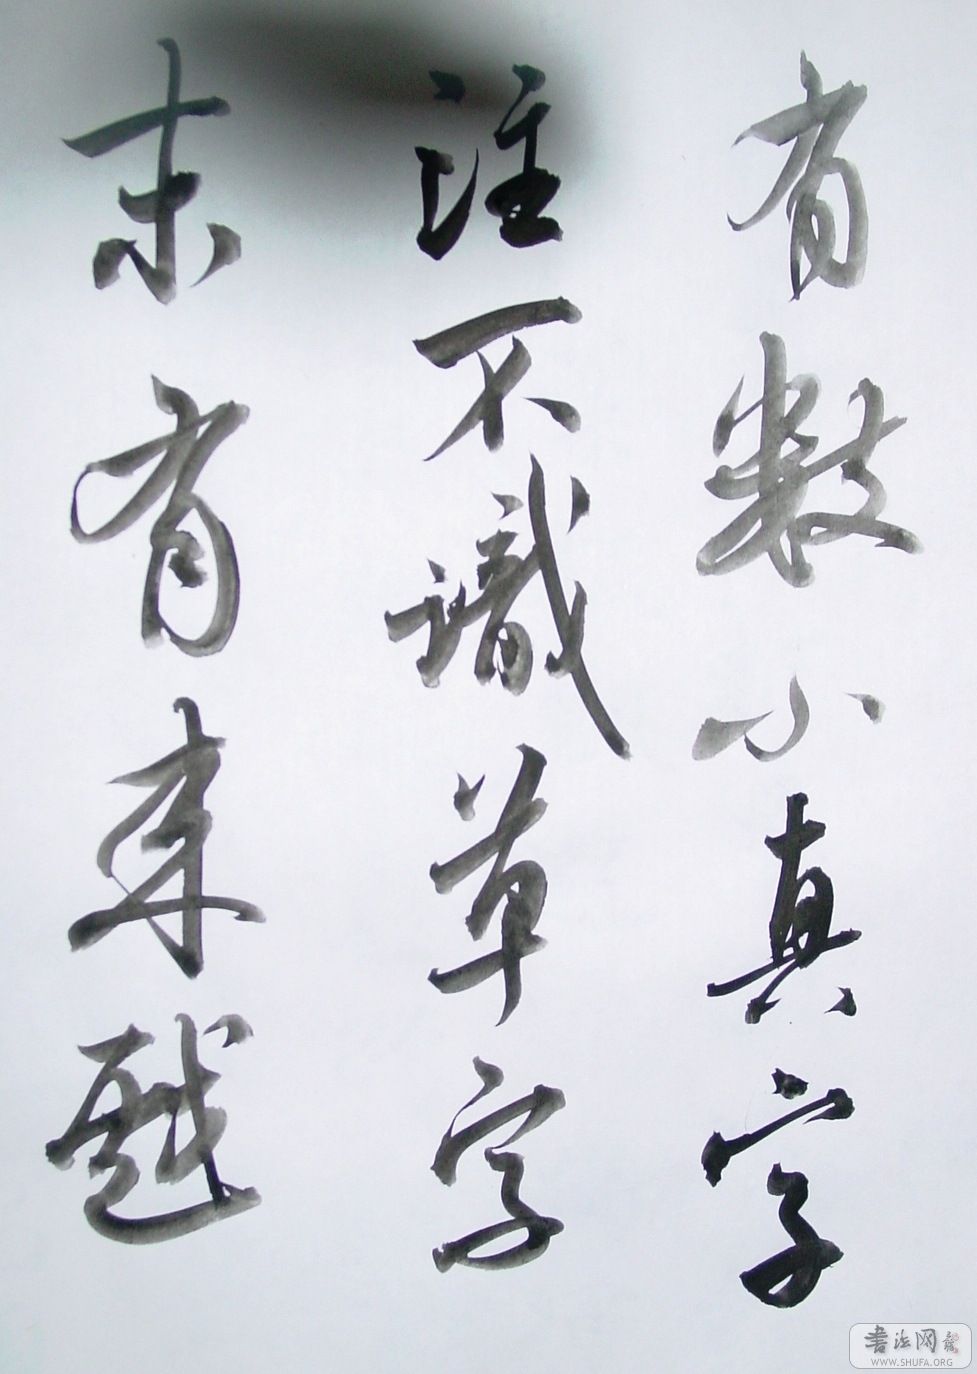 有数小真字
注不識草字
末有来
書法网
WWW.SHUFA.ORG